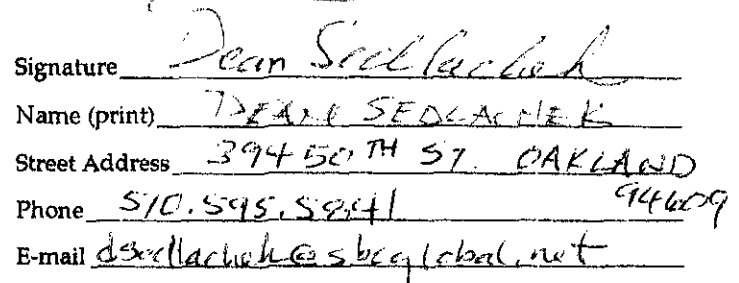 Signature Dean Sedlachek
Name (print) DEAN SEDLACHEK
Street Address 394 50TH ST. OAKLAND
94609
Phone 510.595.5841
E-mail dsedlachek@sbcglobal.net